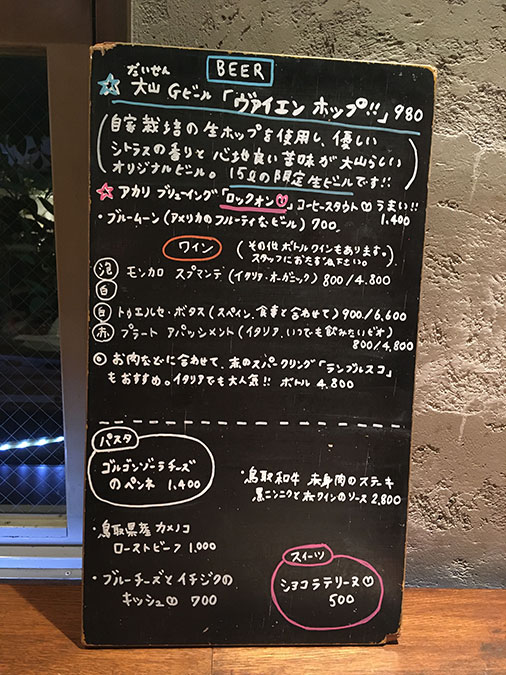 BEER
だいせん
☆大山 Gビール「ヴァイエン ホップ!!」980
(自家栽培の生ホップを使用し、優しい
シトラスの香りと心地良い苦味が大山らしい
オリジナルビール。15ℓの限定生ビールです!!)
☆アカリ ブリューイング「ロックオン♡」コーヒースタウト♡うまい!!
1.400
・ブルームーン(アメリカのフルーティなビール) 700
ワイン (その他ボトルワインもあります。
スタッフにおたずね下さい。)
泡 モンカロ スプマンテ(イタリア・オーガニック) 800/4.800
白
白 トゥエルセ・ボタス(スペイン、食事と合わせて) 900/6,600
赤 プラート アパッシメント(イタリア、いつでも飲みたいビオ)
800/4,800
◎ お肉などに合わせて、赤のスパークリング「ランブルスコ」
もおすすめ。イタリアでも大人気!! ボトル 4.800
パスタ
ゴルゴンゾーラチーズ
のペンネ 1,400
・鳥取和牛 赤身肉のステーキ
黒ニンニクと赤ワインのソース 2,800
・鳥取県産 カメノコ
ローストビーフ 1,000
・ブルーチーズとイチジクの
キッシュ♡ 700
スイーツ
ショコラテリーヌ♡
500